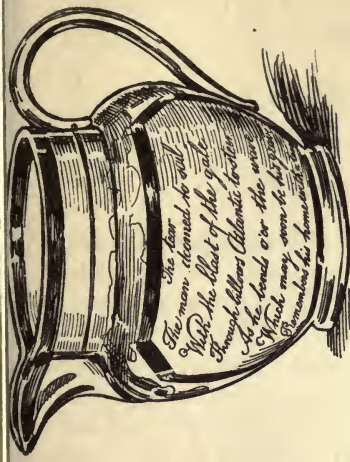 The tear
The man doomed to sail
With the blast of the gale
Through billows Atlantic to steer
As he bends o'er the wave
Which may soon be his grave
Remembers his home with a